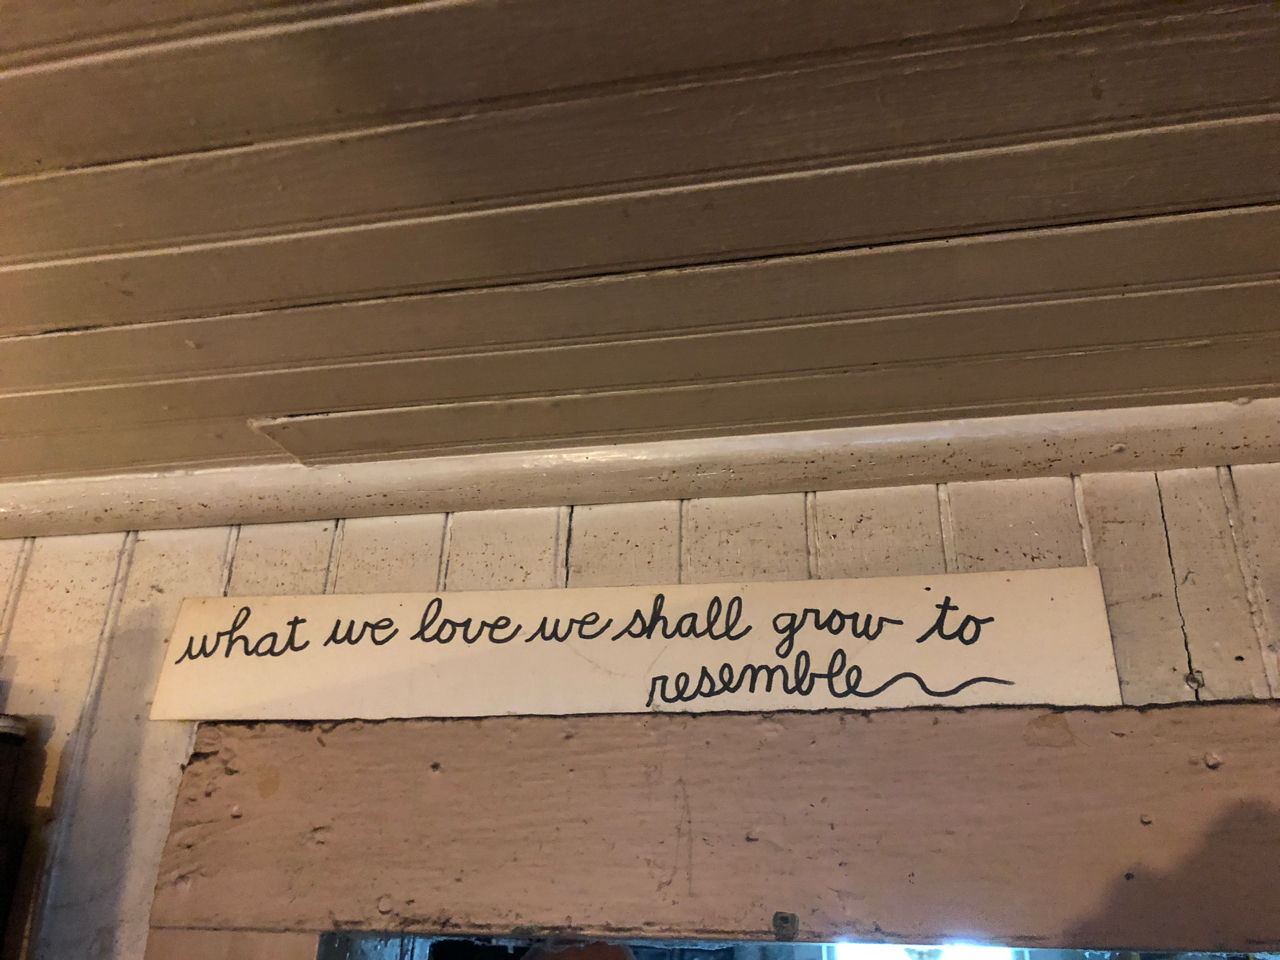 what we love we shall grow to
resemble